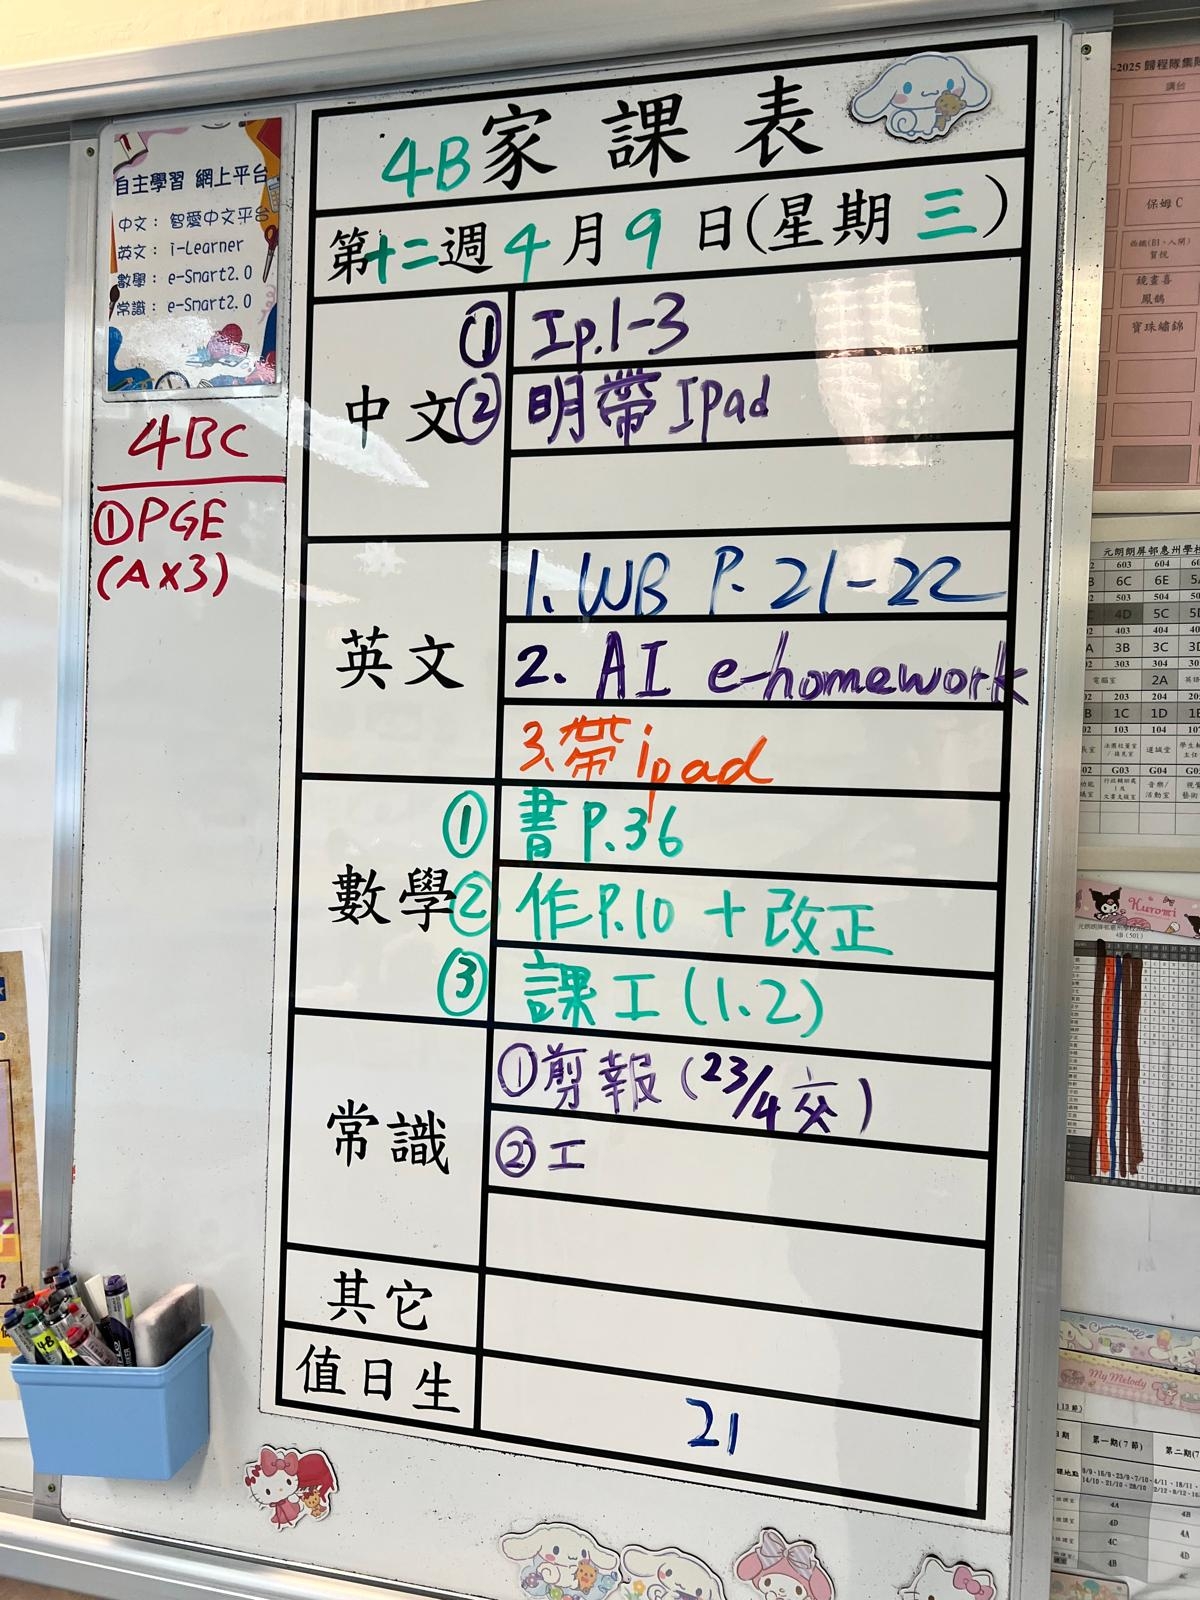 4B家課表
第十二週4月9日(星期三)
中文
① 工p.1-3
② 明帶Ipad
英文
1. WB P. 21-22
2. AI e-homework
3. 帶ipad
數學
① 書P.36
② 作P.10 + 改正
③ 課工(1.2)
常識
① 剪報(23/4交)
② 工
其它
值日生
21
自主學習 網上平台
中文： 智愛中文平台
英文： i-Learner
數學： e-Smart2.0
常識： e-Smart2.0
4BC
① PGE
(A×3)
4B
-2025 歸程隊集隊
講台
保姆 C
寶珠錦繡
元朗朗屏邨惠州學校
603 604
6C 6E
503 504
4D 5C
403 404
3B 3C
303
電腦室 2A
203 204
1C 1D
103 104
G03 G04
Kuromi
4B (501)
Cinnamoroll
My Melody
第一期(7節)
4A 4B
4D 4A
4C 4D
4B 4C